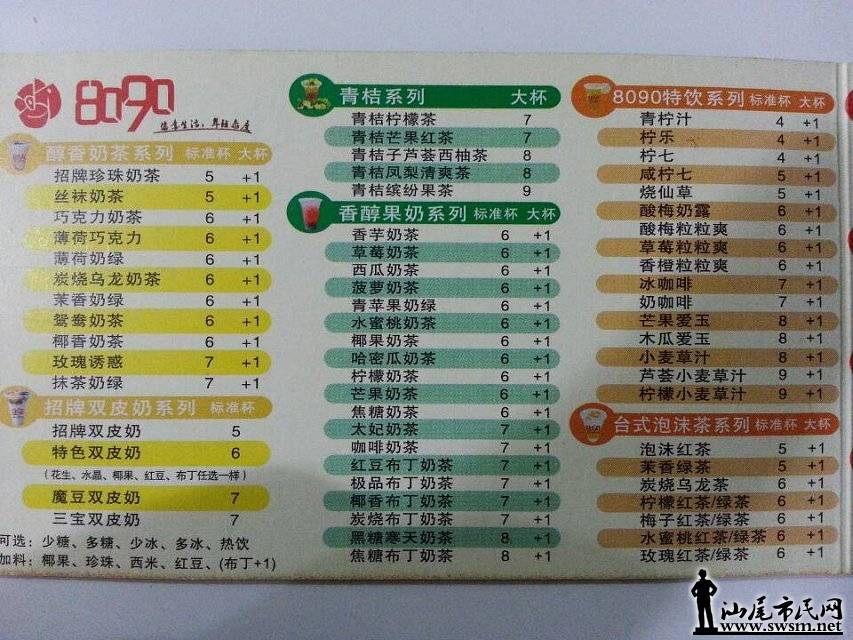 8090
醇香奶茶系列 标准杯 大杯
招牌珍珠奶茶 5 +1
丝袜奶茶 5 +1
巧克力奶茶 6 +1
薄荷巧克力 6 +1
薄荷奶绿 6 +1
炭烧乌龙奶茶 6 +1
茉香奶绿 6 +1
鸳鸯奶茶 6 +1
椰香奶茶 6 +1
玫瑰诱惑 7 +1
抹茶奶绿 7 +1
招牌双皮奶系列 标准杯
招牌双皮奶 5
特色双皮奶 6
(花生、水晶、椰果、红豆、布丁任选一样)
魔豆双皮奶 7
三宝双皮奶 7
可选：少糖、多糖、少冰、多冰、热饮
加料：椰果、珍珠、西米、红豆、(布丁+1)
青桔系列 大杯
青桔柠檬茶 7
青桔芒果红茶 7
青桔子芦荟西柚茶 8
青桔凤梨清爽茶 8
青桔缤纷果茶 9
香醇果奶系列 标准杯 大杯
香芋奶茶 6 +1
草莓奶茶 6 +1
西瓜奶茶 6 +1
菠萝奶茶 6 +1
青苹果奶绿 6 +1
水蜜桃奶茶 6 +1
椰果奶茶 6 +1
哈密瓜奶茶 6 +1
柠檬奶茶 6 +1
芒果奶茶 6 +1
焦糖奶茶 6 +1
太妃奶茶 7 +1
咖啡奶茶 7 +1
红豆布丁奶茶 7 +1
极品布丁奶茶 7 +1
椰香布丁奶茶 7 +1
炭烧布丁奶茶 7 +1
黑糖寒天奶茶 8 +1
焦糖布丁奶茶 8 +1
8090特饮系列 标准杯 大杯
青柠汁 4 +1
柠乐 4 +1
柠七 4 +1
咸柠七 5 +1
烧仙草 5 +1
酸梅奶露 6 +1
酸梅粒粒爽 6 +1
草莓粒粒爽 6 +1
香橙粒粒爽 6 +1
冰咖啡 7 +1
奶咖啡 7 +1
芒果爱玉 8 +1
木瓜爱玉 8 +1
小麦草汁 8 +1
芦荟小麦草汁 9 +1
柠檬小麦草汁 9 +1
台式泡沫茶系列 标准杯 大杯
泡沫红茶 5 +1
茉香绿茶 5 +1
炭烧乌龙茶 6 +1
柠檬红茶/绿茶 6 +1
梅子红茶/绿茶 6 +1
水蜜桃红茶/绿茶 6 +1
玫瑰红茶/绿茶 6 +1
汕尾市民网
www.swsm.net